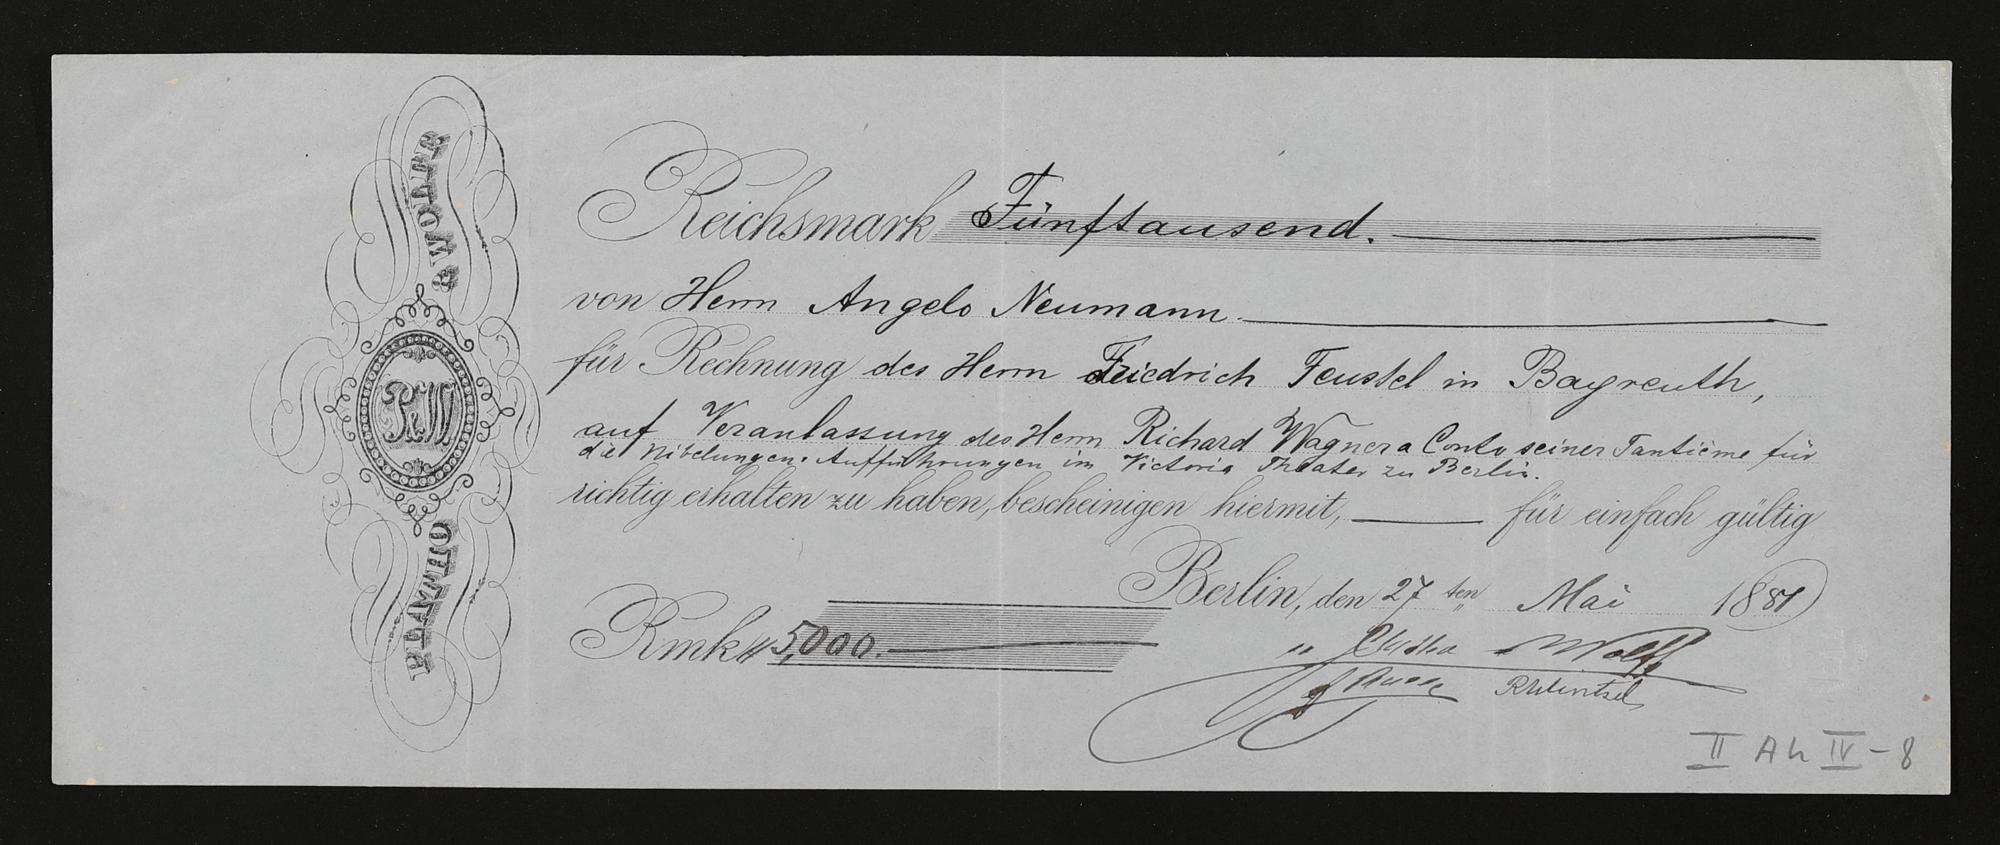 PLATHO & WOLFF
P&W
Reichsmark Fünftausend.
von Herrn Angelo Neumann.
für Rechnung des Herrn Friedrich Feustel in Bayreuth,
auf Veranlassung des Herrn Richard Wagner a Conto seiner Tantième für
die Nibelungen-Aufführungen im Victoria Theater zu Berlin.
richtig erhalten zu haben, bescheinigen hiermit, für einfach gültig
Berlin, den 27ten Mai 1881
Rmk 5,000.
Platho Wolff
II Ah IV-8